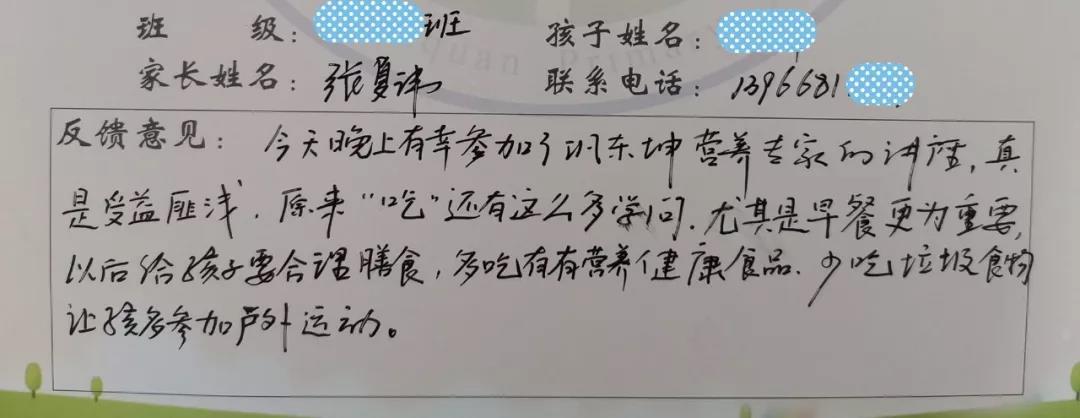 班 级: 班 孩子姓名:
家长姓名: 张夏讳 联系电话: 1396681
反馈意见: 今天晚上有幸参加了巩东坤营养专家的讲座,真
是受益匪浅,原来“吃”还有这么多学问.尤其是早餐更为重要,
以后给孩子要合理膳食,多吃有有营养健康食品.少吃垃圾食物
让孩多参加户外运动。
quan Primary